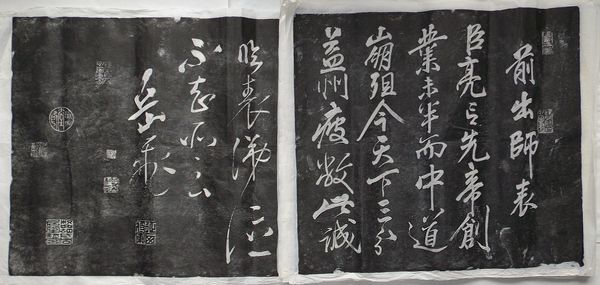 前出師表
臣亮言先帝創
業未半而中道
崩殂今天下三分
益州疲敝此誠
臨表涕泣
不知所云
岳飛